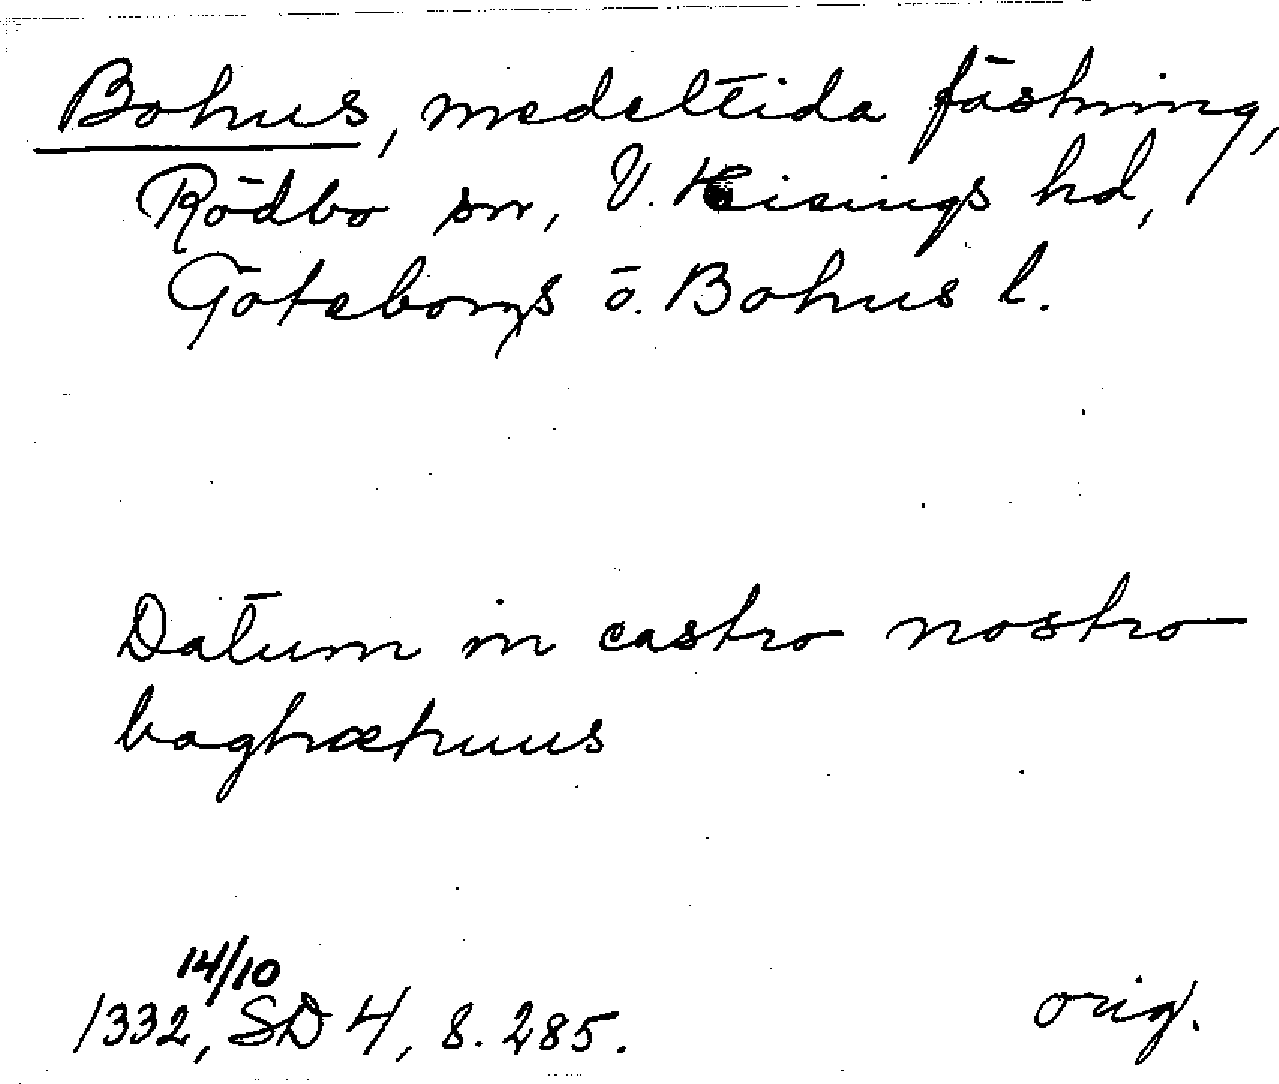 Bohus, medeltida fästning,
Rödbo sn, V. Hisings hd,
Göteborgs o. Bohus l.
Datum in castro nostro
baghæhuus
14/10
1332, SD 4, s. 285.
orig.